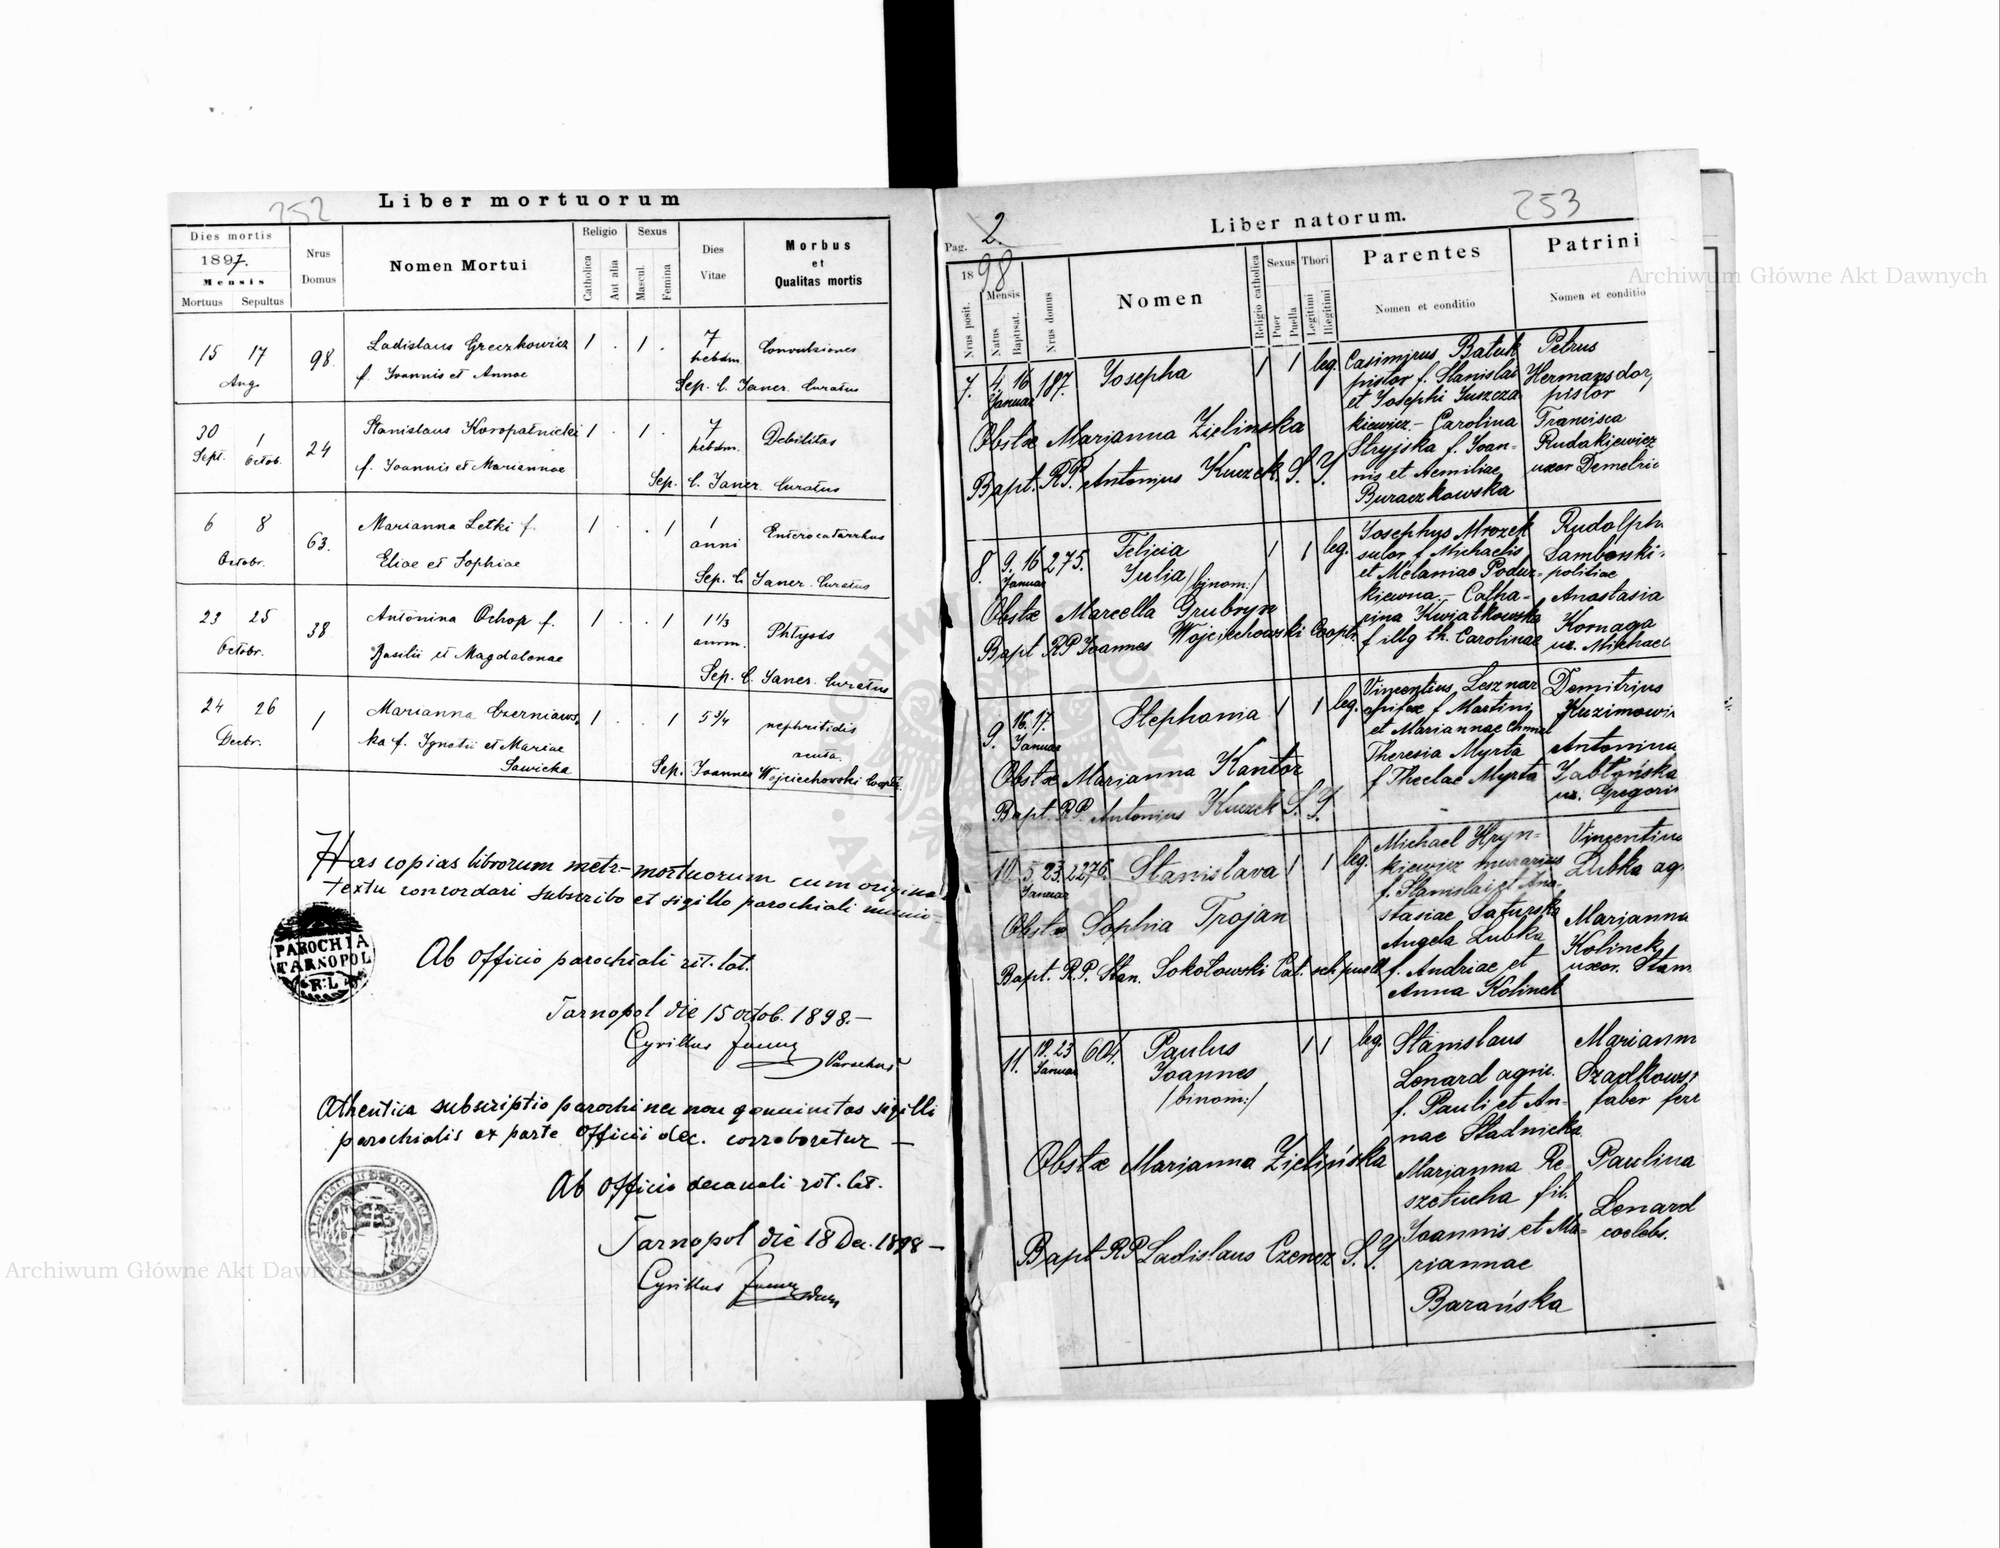 252
Liber mortuorum
Dies mortis
1897.
Mensis
Mortuus Sepultus
Nrus
Domus
Nomen Mortui
Religio
Catholica
Aut alia
Sexus
Mascul.
Femina
Dies
Vitae
Morbus
et
Qualitas mortis
15 17 98 Ladislaus Greczkowicz 1 . 1 . 7 Convulsiones
Aug. f. Ioannis et Annae hebdm.
Sep. C. Janer. Curatus
30 1 24 Stanislaus Koropatnicki 1 . 1 . 7 Debilitas
Sept. Octob. f. Joannis et Mariannae hebdm.
Sep. C. Janer. Curatus
6 8 63. Marianna Letki f. 1 . . 1 1 Enterocatarrhus
Octobr. Eliae et Sophiae anni
Sep. C. Janer. Curatus
23 25 38 Antonina Ochop f. 1 . . 1 1 1/3 Phtysis
Octobr. Basilii et Magdalenae annm.
Sep. C. Janer. Curatus
24 26 1 Marianna Czerniaws- 1 . . 1 5 3/4 nephritidis
Decbr. ka f. Ignatii et Mariae acuta.
Sawicka Sep. Joannes Wojciechowski Cooptr.
Has copias librorum metr-mortuorum cum origina
textu concordari subscribo et sigillo parochiali munio
PAROCHIA
TARNOPOL
R:L
Ab officio parochiali rit. lat.
Tarnopol die 15 octob. 1898.—
Cyrillus
Parochus
Athentica subscriptio parochi nec non genuinitas sigilli
parochialis ex parte officii dec. corroboretur —
Ab officio decanali rit. lat.
Tarnopol die 18 Dec. 1898 —
Cyrillus
253
Pag. 2.
Liber natorum.
1898
Nrus posit.
Mensis
Natus
Baptisat.
Nrus domus
Nomen
Religio catholica
Sexus
Puer
Puella
Thori
Legitimi
Illegitimi
Parentes
Nomen et conditio
Patrini
Nomen et conditio
7. 4. 16 187. Josepha 1 1 leg.
Januar
Casimirus Batuk
pistor f. Stanislai
et Josephi Juszcza
kiewicz. – Carolina
Stryjska f. Joan-
nis et Aemiliae
Buraczkowska
Petrus
Hermansdor
pistor
Francisca
Rudakiewicz
uxor Demetrio
Obstx Marjanna Zielinska
Bapt. R.P. Antonius Kuczek S. J.
8. 9. 16 275. Felicia 1 1 leg.
Januar Julia /binom:/
Josephus Mrozek
sutor f. Michaelis
et Melaniae Podur-
kiewna. – Catha-
rina Kwiatkowska
f illg th. Carolinae
Rudolph
Samborski
politiae
Anastasia
Kornaga
ux. Michael
Obstx Marcella Grubryn
Bapt RP Joannes Wojciechowski Cooptr.
9. 16. 17. Stephania 1 1 leg.
Januar
Vincentius Lesznar
opifex f Martini
et Mariannae Chmiel
Theresia Myrta
f Theclae Myrta
Demitrius
Kuzimowi
Antonina
Jabłońska
ux. Gregori
Obstx Marianna Kantor
Bapt. R.P. Antonius Kuczek S. J.
10. 5. 23. 2276. Stanislava 1 1 leg.
Januar
Michael Hryn-
kiewicz murarius
f. Stanislai et Ana-
stasiae Saturska
Angela Lubka
f. Andriae et
Anna Kolinek
Vincentius
Lubka ag.
Marianna
Kolinek
uxor. Stan
Obstx Sophia Trojan
Bapt. R.P. Stan. Sokołowski Cat. sch puell
11. 19. 23 604. Paulus 1 1 leg
Januar Joannes
/binom:/
Stanislaus
Lenard agric.
f. Pauli et An-
nae Stadnicka
Marjanna Re-
szetucha fil.
Joannis et Ma-
riannae
Barańska
Mariann
Szadkows
faber ferr
Paulina
Lenard
coelebs.
Obstx Marjanna Zielińska
Bapt RP Ladislaus Czencz S. J.
Archiwum Główne Akt Dawnych
Archiwum Główne Akt Dawnych